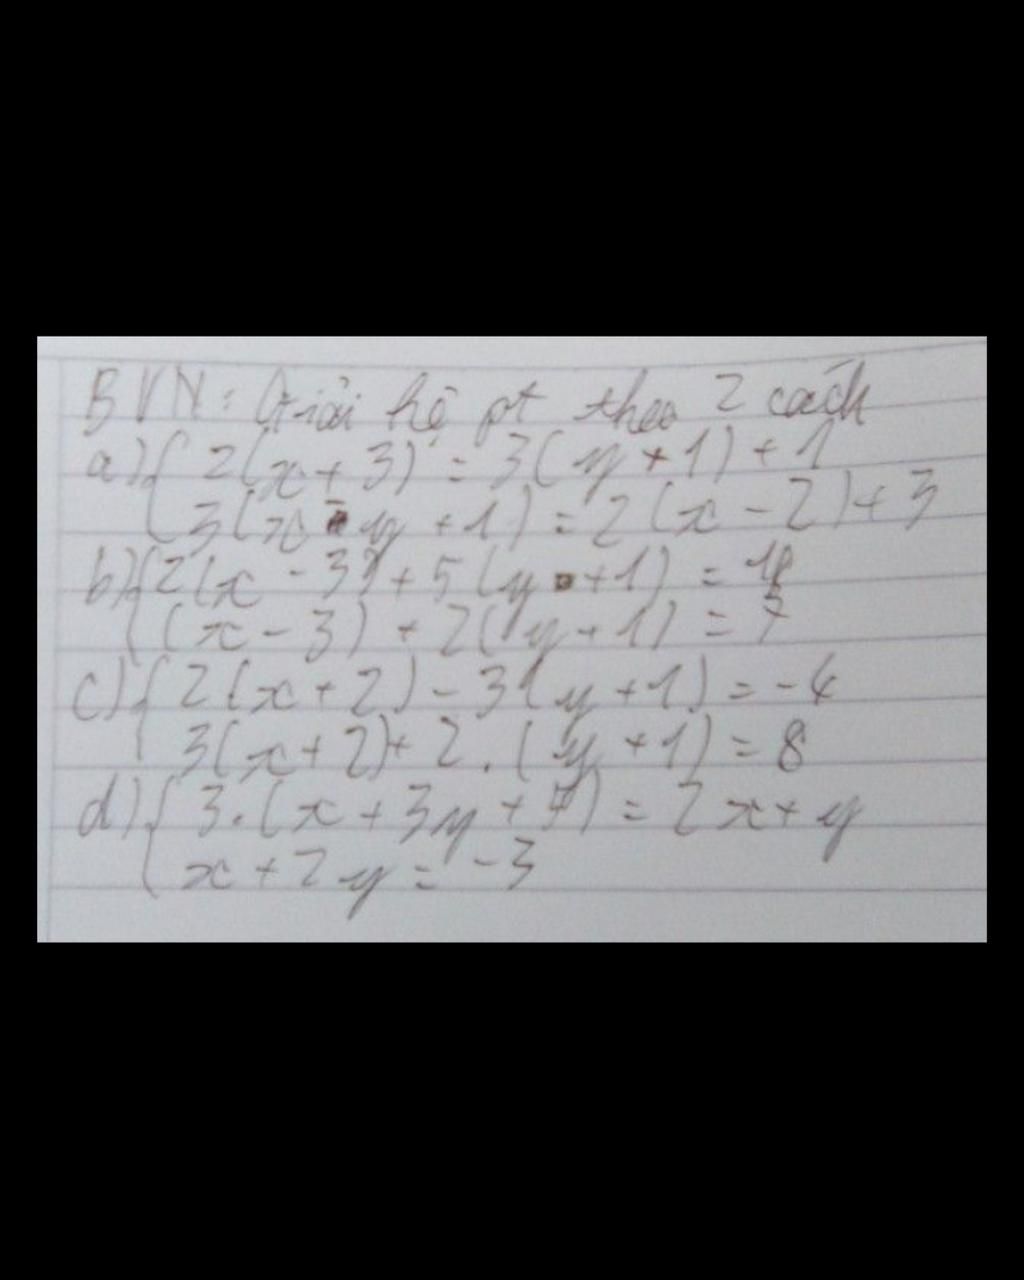 BVN: Giải hệ pt theo 2 cách
a) { 2(x + 3) = 3(y + 1) + 1
3(x - y + 1) = 2(x - 2) + 3
b) { 2(x - 3) + 5(y + 1) =
(x - 3) + 2(y + 1) = 7
c) { 2(x + 2) - 3(y + 1) = -4
3(x + 2) + 2 . (y + 1) = 8
d) { 3.(x + 3y + 7) = 2x + y
x + 2y = -3